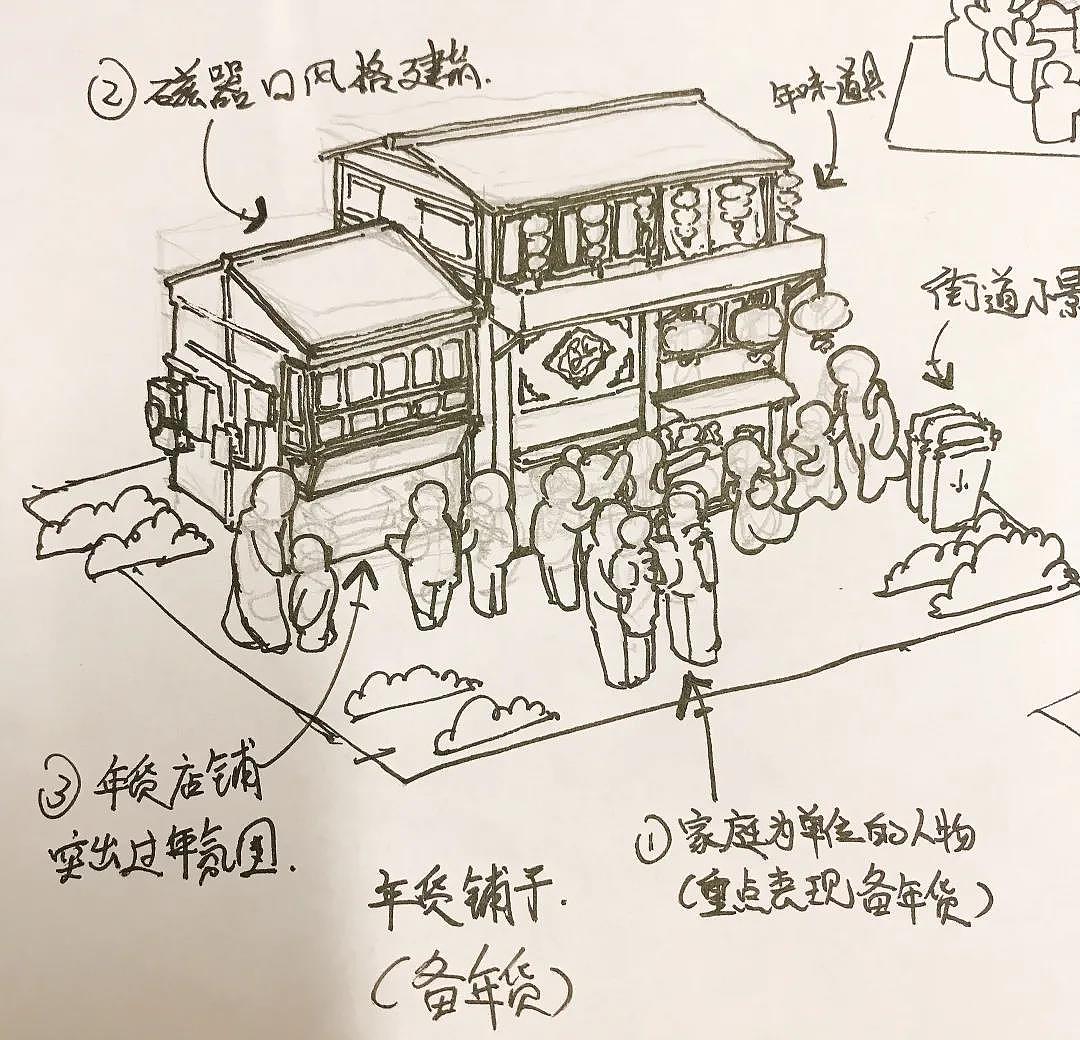 ② 磁器口风格建筑.
年味道具
街道小景
③ 年货店铺
突出过年氛围.
① 家庭为单位的人物
(重点表现备年货)
年货铺子.
(备年货)